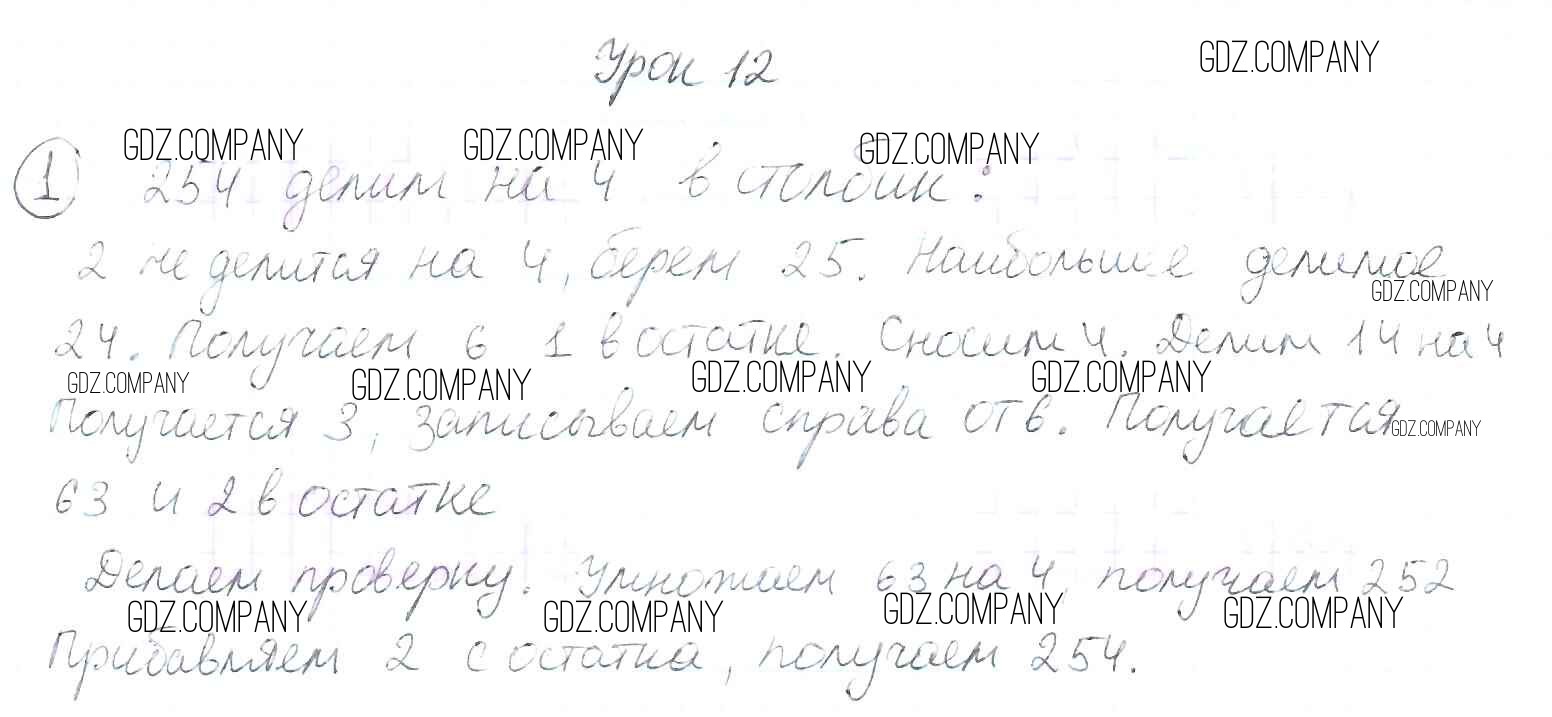 Урок 12
GDZ.COMPANY
GDZ.COMPANY GDZ.COMPANY GDZ.COMPANY
1 254 делим на 4 в столбик:
2 не делится на 4, берем 25. Наибольшее делимое
GDZ.COMPANY
24. Получаем 6 1 в остатке. Сносим 4. Делим 14 на 4
GDZ.COMPANY GDZ.COMPANY GDZ.COMPANY GDZ.COMPANY
Получается 3, записываем справа от 6. Получается
GDZ.COMPANY
63 и 2 в остатке
Делаем проверку. Умножаем 63 на 4, получаем 252
GDZ.COMPANY GDZ.COMPANY GDZ.COMPANY GDZ.COMPANY
Прибавляем 2 с остатка, получаем 254.